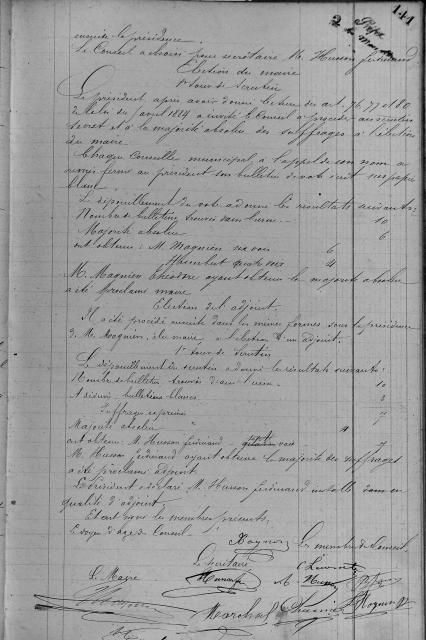 141
ensuite la présidence
Le Conseil a choisi pour secrétaire M. Husson Ferdinand
Election du maire
1er tour de scrutin
Le président, après avoir donné lecture des art. 76, 77 et 80
de la loi du 5 avril 1884 a invité le Conseil à procéder au scrutin
secret et à la majorité absolue des suffrages à l'élection
du maire.
Chaque Conseiller municipal, à l'appel de son nom a
remis fermé au président son bulletin de vote écrit sur papier
blanc
Le dépouillement du vote a donné les résultats suivants:
Nombre de bulletins trouvés dans l'urne 10
Majorité absolue 6
ont obtenu: M. Magnien six voix 6
quatre voix 4
M. Magnien Théodore ayant obtenu la majorité absolue
a été proclamé maire
Election de l'adjoint.
Il a été procédé ensuite dans les mêmes formes, sous la présidence
de M. Magnien, élu maire, à l'élection d'un adjoint.
1er tour de scrutin
Le dépouillement du scrutin a donné les résultats suivants:
Nombre de bulletins trouvés dans l'urne 10
A déduire bulletins blancs 3
Suffrages exprimés 7
Majorité absolue 4
ont obtenu: M. Husson Ferdinand voix 7
M. Husson Ferdinand ayant obtenu la majorité des suffrages
a été proclamé adjoint
Le Président a déclaré M. Husson Ferdinand installé dans en
qualité d'adjoint
Et ont signé les membres présents.
Le doyen d'âge du Conseil
Les membres du Conseil
Le Secrétaire
Le Maire
Marchal